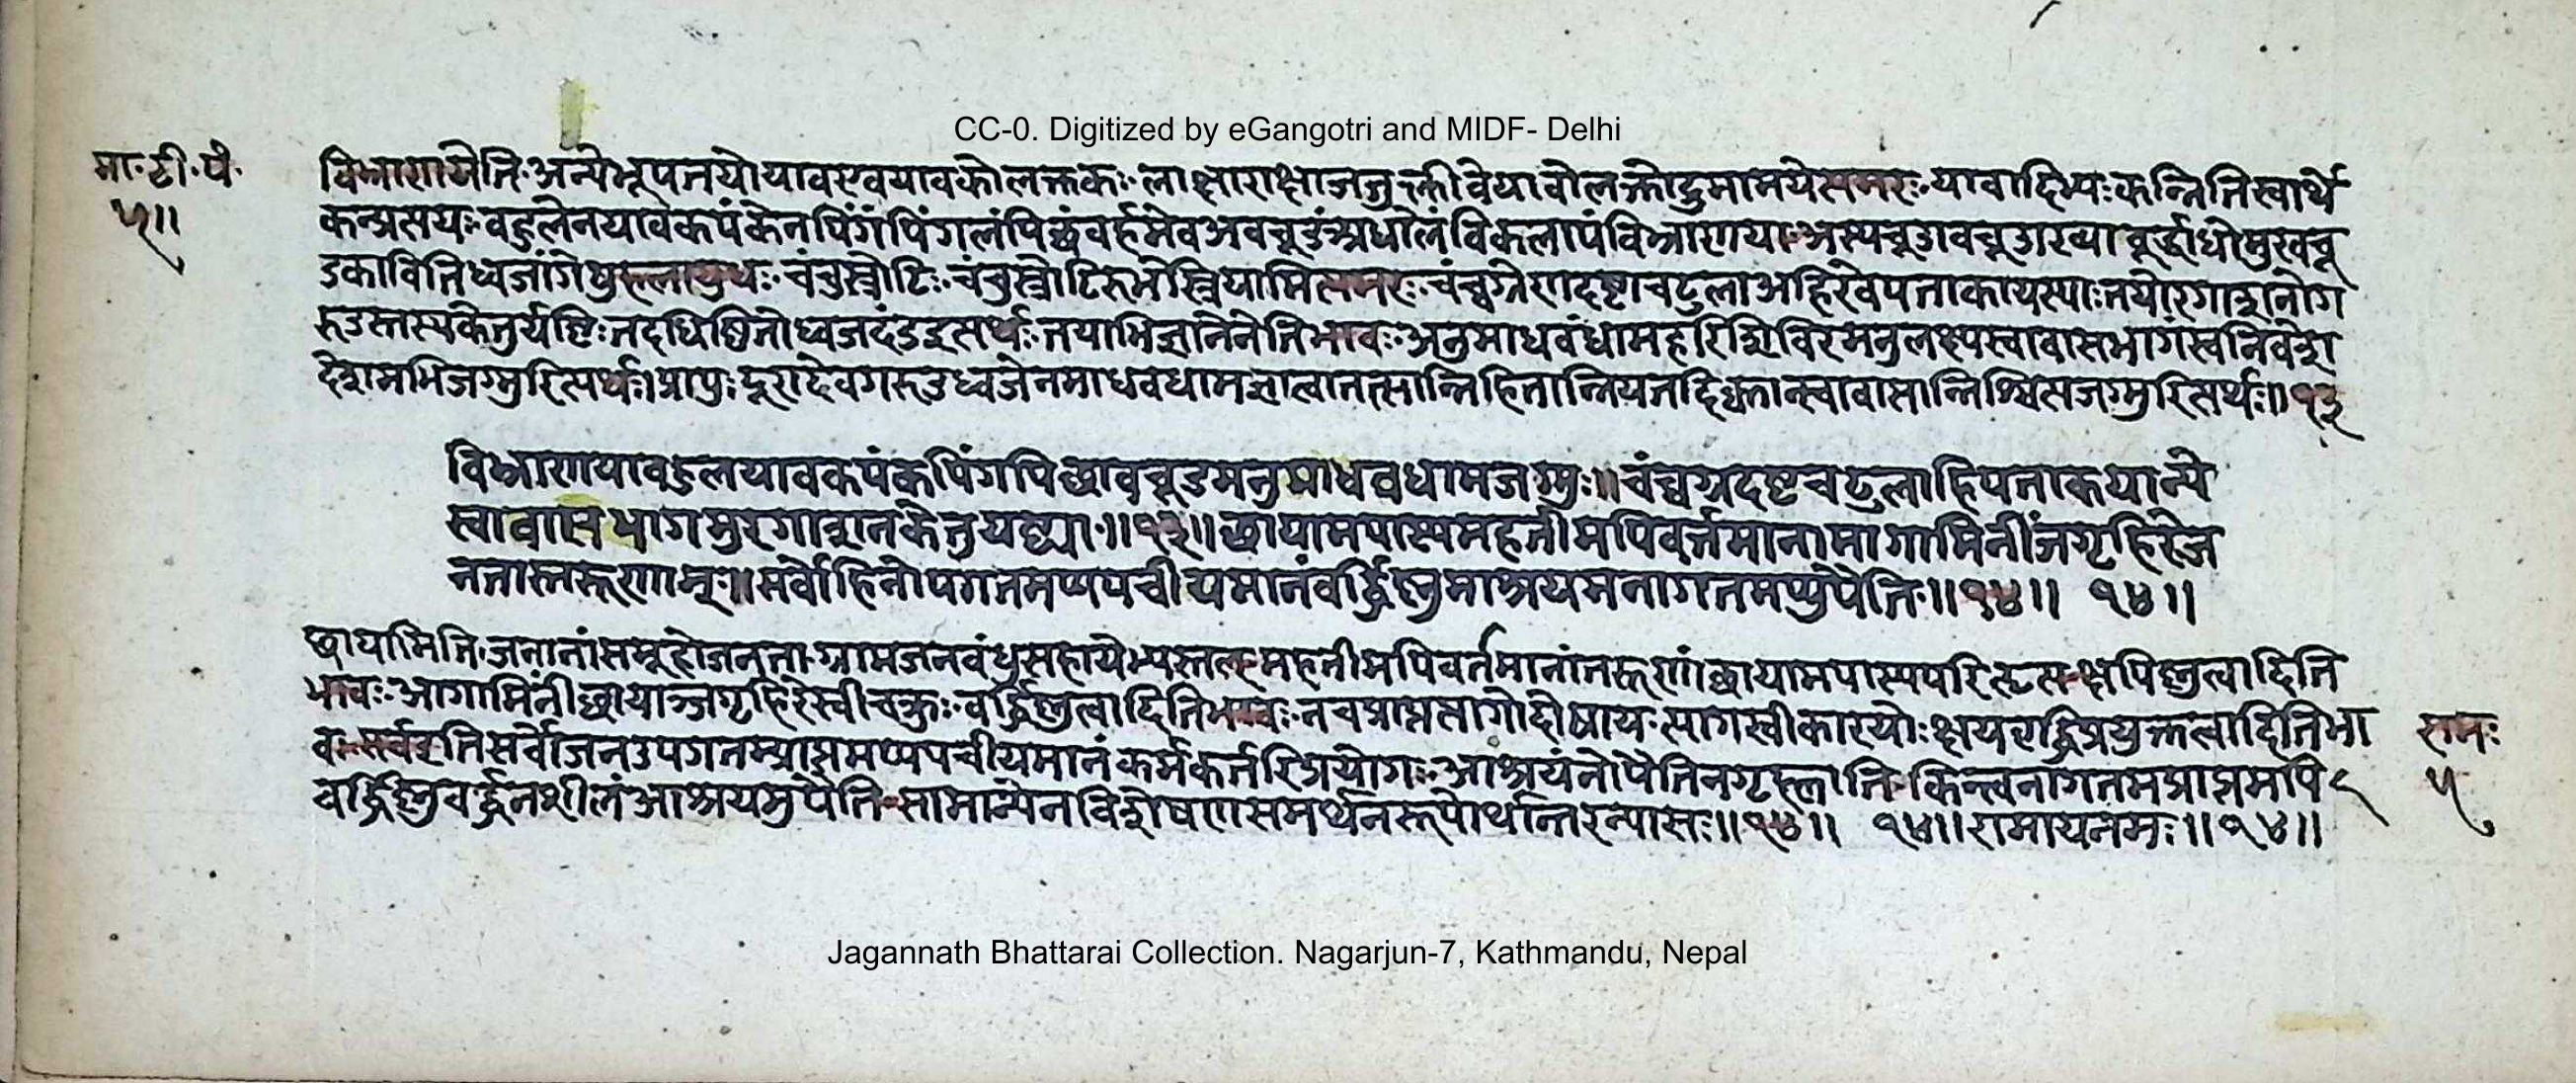 CC-0. Digitized by eGangotri and MIDF- Delhi
मा॰टी॰पं॰
५॥
विभ्राणायेति॰अन्येभूपतयोयावएवयावकोलक्तकः॰लाक्षाराक्षाजतुक्लीवेयावोलक्तोद्रुमामयेत्यमरः॰यावादिभ्यःकन्नितिस्वार्थे
कन्प्रत्ययः॰वहुलेनयावकपंकेनपिंगंपिंगलंपिछंवर्हमेवअवचूडंअधोलंविकलापंविभ्राणया॰अस्यचूडावचूडाख्यावूर्द्धाधोमुखचू
डकावितिध्वजांगेषुहलायुधः॰चंचुस्त्रोटिः॰चंचुस्त्रोटिरुभेस्त्रियामित्यमरः॰चंच्वग्रेणदष्टाचटुलाअहिरेवपताकायस्याःतयोरगाशनोग
रुडस्तस्यकेतुर्यष्टिःतदधिष्ठितोध्वजदंडइत्यर्थः॰तयाभिज्ञानेनेतिभावः॰अनुमाधवंधामहरिशिविरमनुलक्ष्यस्वावासभागंस्वनिवेश
देशमभिजग्मुरित्यर्थः॥प्रापुःदूरादेवगरुडध्वजेनमाधवधामज्ञात्वातत्सान्निहितान्नियतदिक्कान्स्वावासान्निश्चित्यजग्मुरित्यर्थः॥१३
विभ्राणयावहुलयावकपंकपिंगपिछावचूडमनुमाधवधामजग्मुः॥चंच्वग्रदष्टचटुलाहिपताकयान्ये
स्वावासभागमुरगाशनकेतुयष्ट्या॰॥१३॥छायामपास्यमहतीमपिवर्त्तमानामागामिनींजगृहिरेज
नतास्तरूणाम्॰॥सर्वोहिनोपगतमप्यपचीयमानंवर्द्धिष्णुमाश्रयमनागतमप्युपैति॰॥१४॥ १४॥
छायामिति॰जनानांसमूहोजनता॰ग्रामजनवंधुसहायेभ्यस्तल्॰महतीमपिवर्तमानांतरूणांछायामपास्यपरिहृत्य॰क्षयिष्णुत्वादिति
भावः॰आगामिनींछायाञ्जगृहिरेस्वीचक्रुः॰वर्द्धिष्णुत्वादितिभावः॰नचप्राप्तत्यागोदोषाय॰त्यागस्वीकारयोःक्षयवृद्धिप्रयुक्तत्वादितिभा
वः॰सर्वइतिसर्वोजनउपगतम्प्राप्तमप्यपचीयमानंकर्मकर्तरिप्रयोगः॰आश्रयंनोपैतिनगृह्णाति॰किन्त्वनागतमप्राप्तमपि
वर्द्धिष्णुवर्द्धनशीलंआश्रयमुपैति॰सामान्येनविशेषणसमर्थनरूपोर्थान्तरन्यासः॥१४॥ १४॥रामायनमः॥१४॥
रामः
५
Jagannath Bhattarai Collection. Nagarjun-7, Kathmandu, Nepal